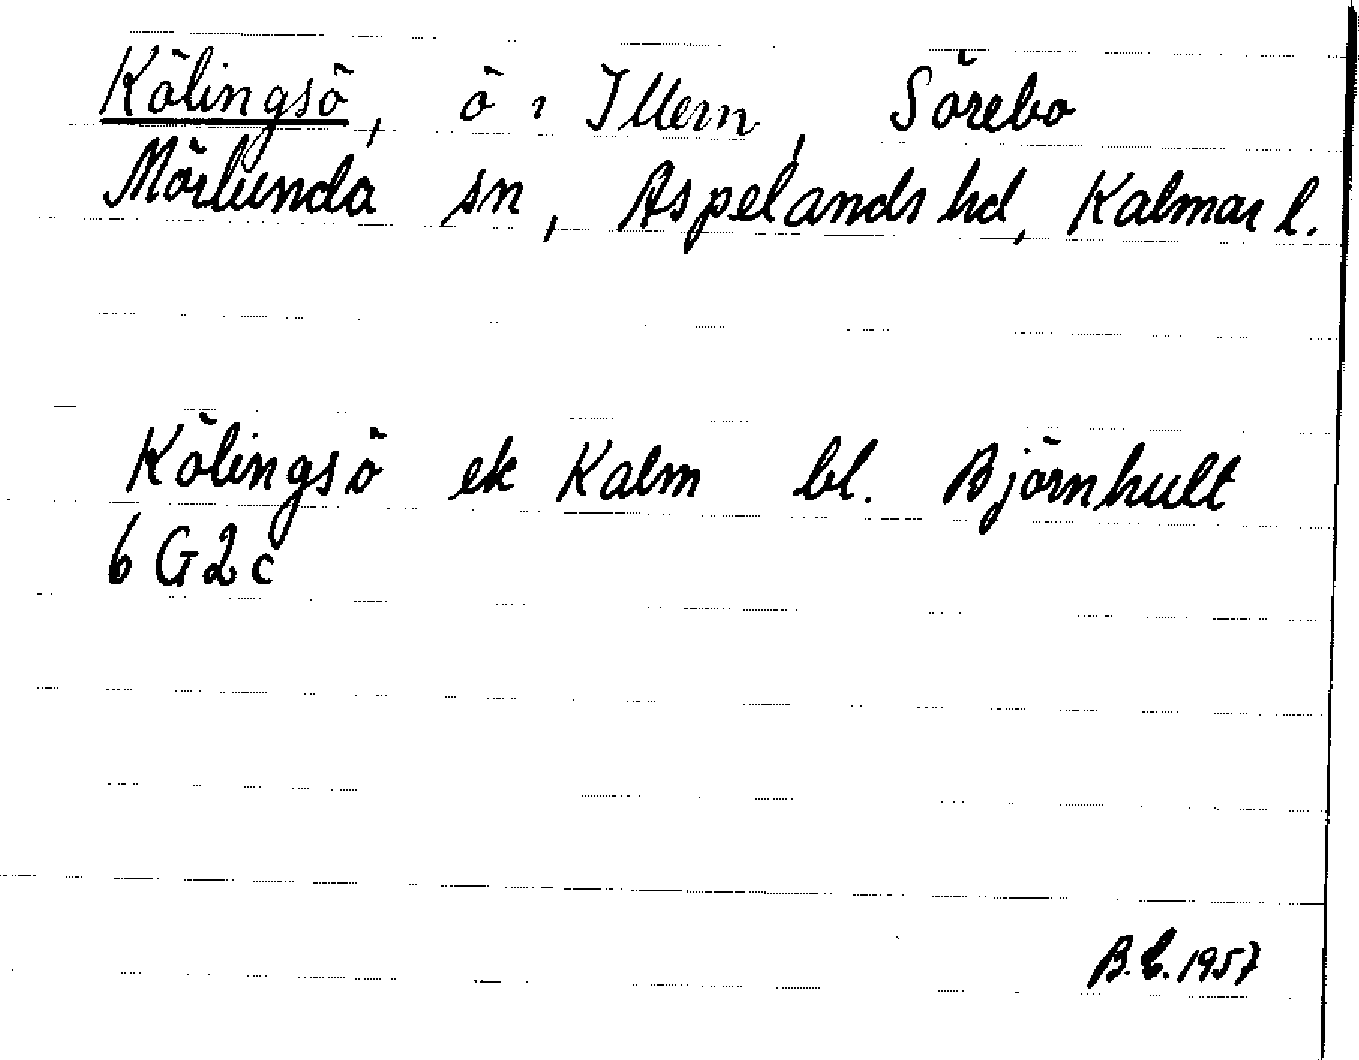 Kölingsö, ö i Illern, Sörebo
Mörlunda sn, Aspelands hd, Kalmar l.
Kölingsö ek Kalm bl. Björnhult
6 G 2 c
B.C. 1957